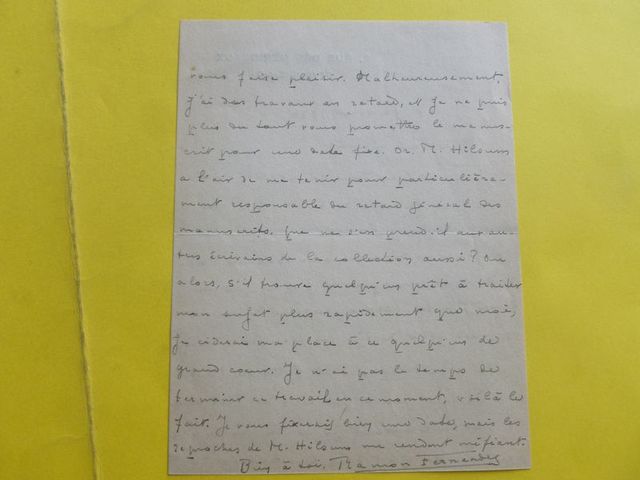 vous fasse plaisir. Malheureusement,
j'ai des travaux en retard, et je ne puis
plus du tout vous promettre le manus-
crit pour une date fixe. Or M. Hilsum
a l'air de me tenir pour particulière-
ment responsable du retard général des
manuscrits. Que ne s'en prend-il aux au-
tres écrivains de la collection aussi? Ou
alors, s'il trouve quelqu'un prêt à traiter
mon sujet plus rapidement que moi,
je cèderai ma place à ce quelqu'un de
grand coeur. Je n'ai pas le temps de
terminer ce travail en ce moment, voilà le
fait. Je vous fixerais bien une date, mais les
reproches de M. Hilsum me rendent méfiant.
Bien à toi, Ramon Fernandez